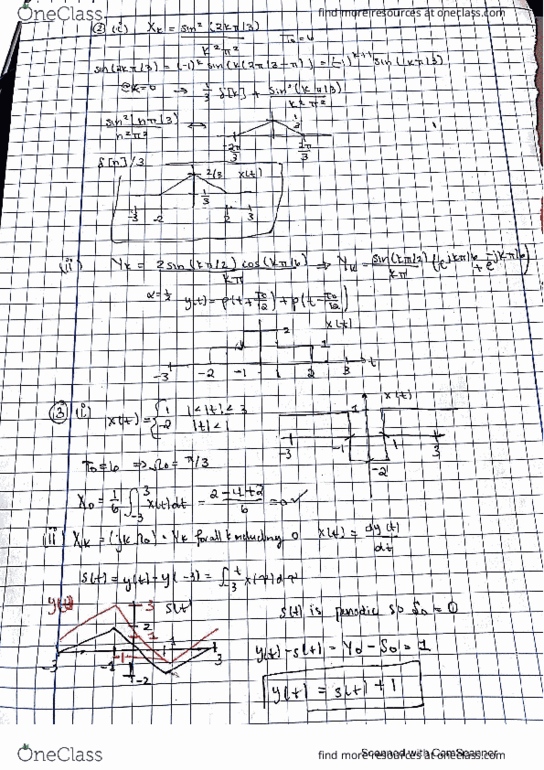 OneClass
find more resources at oneclass.com
② (i) Xₖ = sin²(2kπ/3)
k²π²
sin(2kπ/3) = (-1)ᵏ sin(k(2π/3 - π)) = (-1)ᵏ⁺¹ sin(kπ/3)
@k=0 → 1/3 δ[k] + sin²(kπ/3)
k²π²
sin²(nπ/3) ↔
n²π²
1/3
-2π/3 2π/3
δ[n]/3
2/3 x(t)
1/3
-3 -2 2 3
(ii) Yₖ = 2 sin(kπ/2) cos(kπ/6) ⇒ Yₖ = sin(kπ/2) (e^jkπ/6 + e^-jkπ/6)
kπ kπ
y(t) = p(t + T₀/12) + p(t - T₀/12)
x(t)
2
1
-3 -2 -1 1 2 3 t
③ (i) x(t) = { 1 1<|t|<3
-2 |t|<1
x(t)
1
-3 -1 1 3
-2
T₀=6 ⇒ Ω₀ = π/3
X₀ = 1/6 ∫₋₃³ x(t)dt = 2-4+2 / 6 = 0 ✓
(ii) Xₖ = (jkΩ₀) · Yₖ for all k including 0 x(t) = dy(t)/dt
s(t) = y(t) - y(-3) = ∫₋₃ᵗ x(τ)dτ
y(t) 3 s(t)
2
1
-3 -1 1 3
-1
-2
s(t) is periodic so S₀ = 0
y(t) - s(t) = Y₀ - S₀ = 1
y(t) = s(t) + 1
OneClass
find more resources at oneclass.com
Scanned with CamScanner